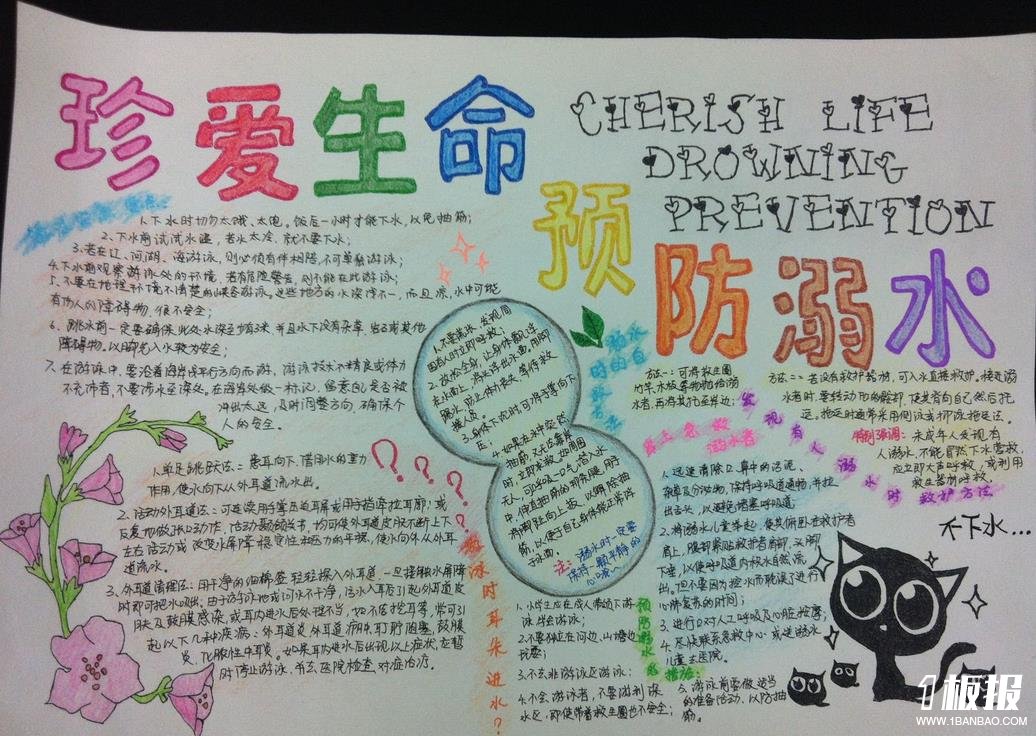 珍爱生命
CHERISH LIFE
DROWNING
PREVENTION
预防溺水
1、下水时切勿太饿、太饱。饭后一小时才能下水,以免抽筋;
2、下水前试试水温,若水太冷,就不要下水;
3、若在江、河、湖、海游泳,则必须有伴相陪,不可单独游泳;
4、下水前观察游泳处的环境,若有危险警告,则不能在此游泳;
5、不要在地理环境不清楚的峡谷游泳。这些地方的水深浅不一,而且凉,水中可能
有伤人的障碍物,很不安全;
6、跳水前一定要确保此处水深
并且水下没有杂草、岩石或其他
障碍物。以脚先入水较为安全;
7、在游泳中,要沿着海岸线平行方向而游,游泳技术不精良或体力
不充沛者,不要涉水至深处。在海岸做一标记,留意自己是否被
冲出太远,及时调整方向,确保个
人的安全。
1、不要慌张,发现周
围有人时立即呼救;
2、放松全身,让身体飘浮
在水面上,将头部浮出水面,用脚
踢水,防止体力丧失,等待救
援人员。
3、身体下沉时,可将手掌向下
4、如果在水中突然
抽筋,又无法靠岸
时,立即求救。如周围
无人,可深吸一口气潜入水
中,伸直抽筋的那条腿,用手
将脚趾向上扳,以解除抽
筋,以便于自己身体能正常浮
于水面。
注:溺水时一定要
保持一颗平静的
心哦~
溺水
时的自
方法一:可将救生圈、
竹竿、木板等物抛给溺
水者,再将其拖至岸边;
方法二:若没有救护器材,可入水直接救护。接近溺
水者时要转动他的髋部,使其背向自己然后拖
运。拖运时通常采用侧泳或仰泳拖运法。
特别强调:未成年人发现有
人溺水,不能冒然下水营救,
应立即大声呼救,或利用
救生器材呼救。
发现有人溺水时救护方法
岸上急救溺水者
1、迅速清除口、鼻中的污泥、
杂草及分泌物,保持呼吸道通畅,并拉
出舌头,以避免堵塞呼吸道;
2、将溺水儿童举起,使其俯卧在救护者
肩上,腹部紧贴救护者肩部,头脚
下垂,以使呼吸道内积水自然流
出。但不要因为控水而耽误了进行
心肺复苏的时间;
3、进行口对人工呼吸及心脏按摩;
4、尽快联系急救中心或送溺水
儿童去医院。
不下水…
游泳时耳朵进水?
1、单足跳跃法:患耳向下,借用水的重力
作用,使水向下从外耳道流水出。
2、活动外耳道法:可连续用手掌压迫耳屏或用手指牵拉耳廓;或
反复地做张口动作,活动颞颌关节,均可使外耳道皮肤不断上下
左右活动或改变水屏障稳定性和压力的平衡,使水向外从外耳
道流水。
3、外耳道清理法:用干净的细棉签轻轻探入外耳道,一旦接触水屏障
时即可把水吸出。由于游泳池或河水不干净,污水入耳后引起外耳道皮
肤及鼓膜感染,或耳内进水后处理不当,如不洁挖耳等,常可引
起以下几种疾病:外耳道炎、外耳道疖、耵聍阻塞、鼓膜
炎、化脓性中耳炎。如果耳内进水后出现以上症状,应暂
时停止游泳,并去医院检查,对症治疗。
????
预防溺水的措施:
1、小学生应在成人带领下游
泳、学会游泳;
2、不要独立在河边、山塘边
玩耍;
3、不去非游泳区游泳;
4、不会游泳者,不要游到深
水区,即使带着救生圈也不安全;
5、游泳前要做适当
的准备活动,以防抽
筋。
1板报
WWW.1BANBAO.COM